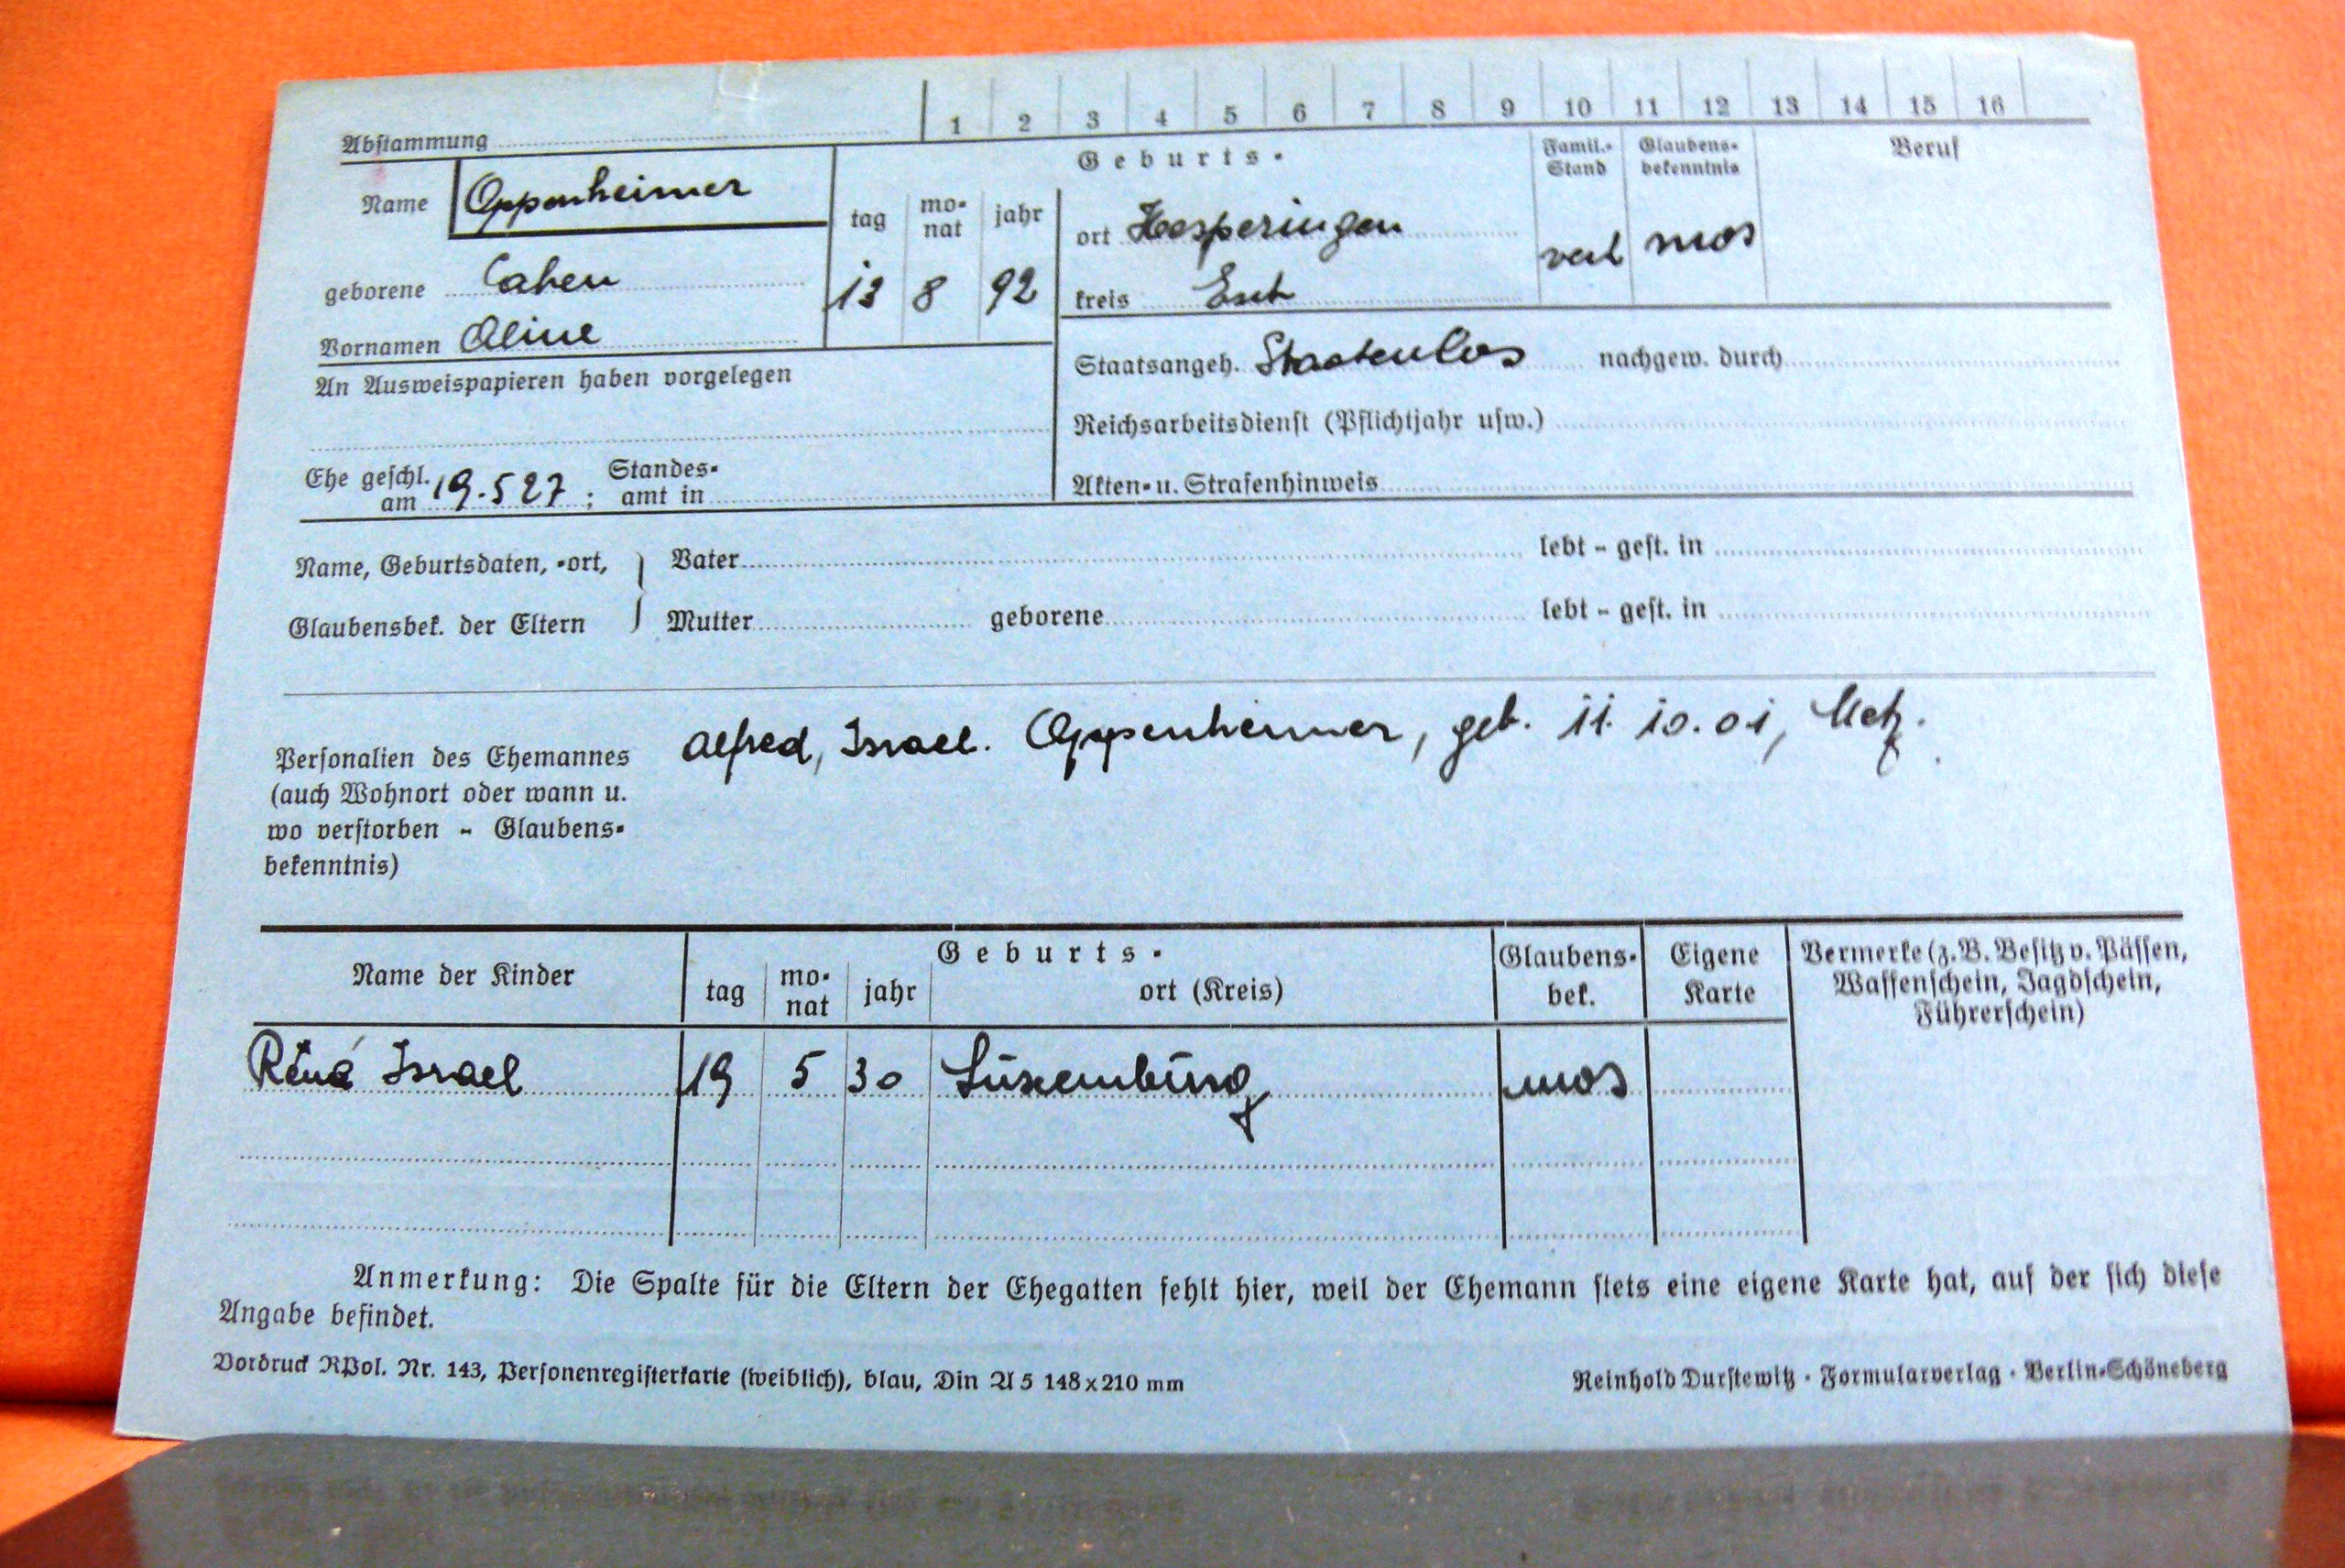 1 2 3 4 5 6 7 8 9 10 11 12 13 14 15 16
Abstammung
Geburts-
Famil.- Stand
Glaubens- bekenntnis
Beruf
Name Oppenheimer
tag mo- nat jahr
ort Hesperingen
verh mos
geborene Cahen
13 8 92
kreis Esch
Vornamen Aline
An Ausweispapieren haben vorgelegen
Staatsangeh. Staatenlos nachgew. durch
Reichsarbeitsdienst (Pflichtjahr usw.)
Ehe geschl. am 19.5 27 ; Standes- amt in
Akten- u. Strafenhinweis
Name, Geburtsdaten, -ort, Vater lebt - gest. in
Glaubensbek. der Eltern Mutter geborene lebt - gest. in
Alfred, Israel. Oppenheimer, geb. 11. 10. 01, Metz.
Personalien des Ehemannes
(auch Wohnort oder wann u.
wo verstorben - Glaubens-
bekenntnis)
Name der Kinder
Geburts-
tag mo- nat jahr ort (Kreis)
Glaubens- bek.
Eigene Karte
Vermerke (z. B. Besitz v. Pässen,
Waffenschein, Jagdschein,
Führerschein)
Réné Israel 19 5 30 Luxemburg mos
Anmerkung: Die Spalte für die Eltern der Ehegatten fehlt hier, weil der Ehemann stets eine eigene Karte hat, auf der sich diese
Angabe befindet.
Vordruck RPol. Nr. 143, Personenregisterkarte (weiblich), blau, Din A 5 148x210 mm
Reinhold Durstewitz · Formularverlag · Berlin-Schöneberg